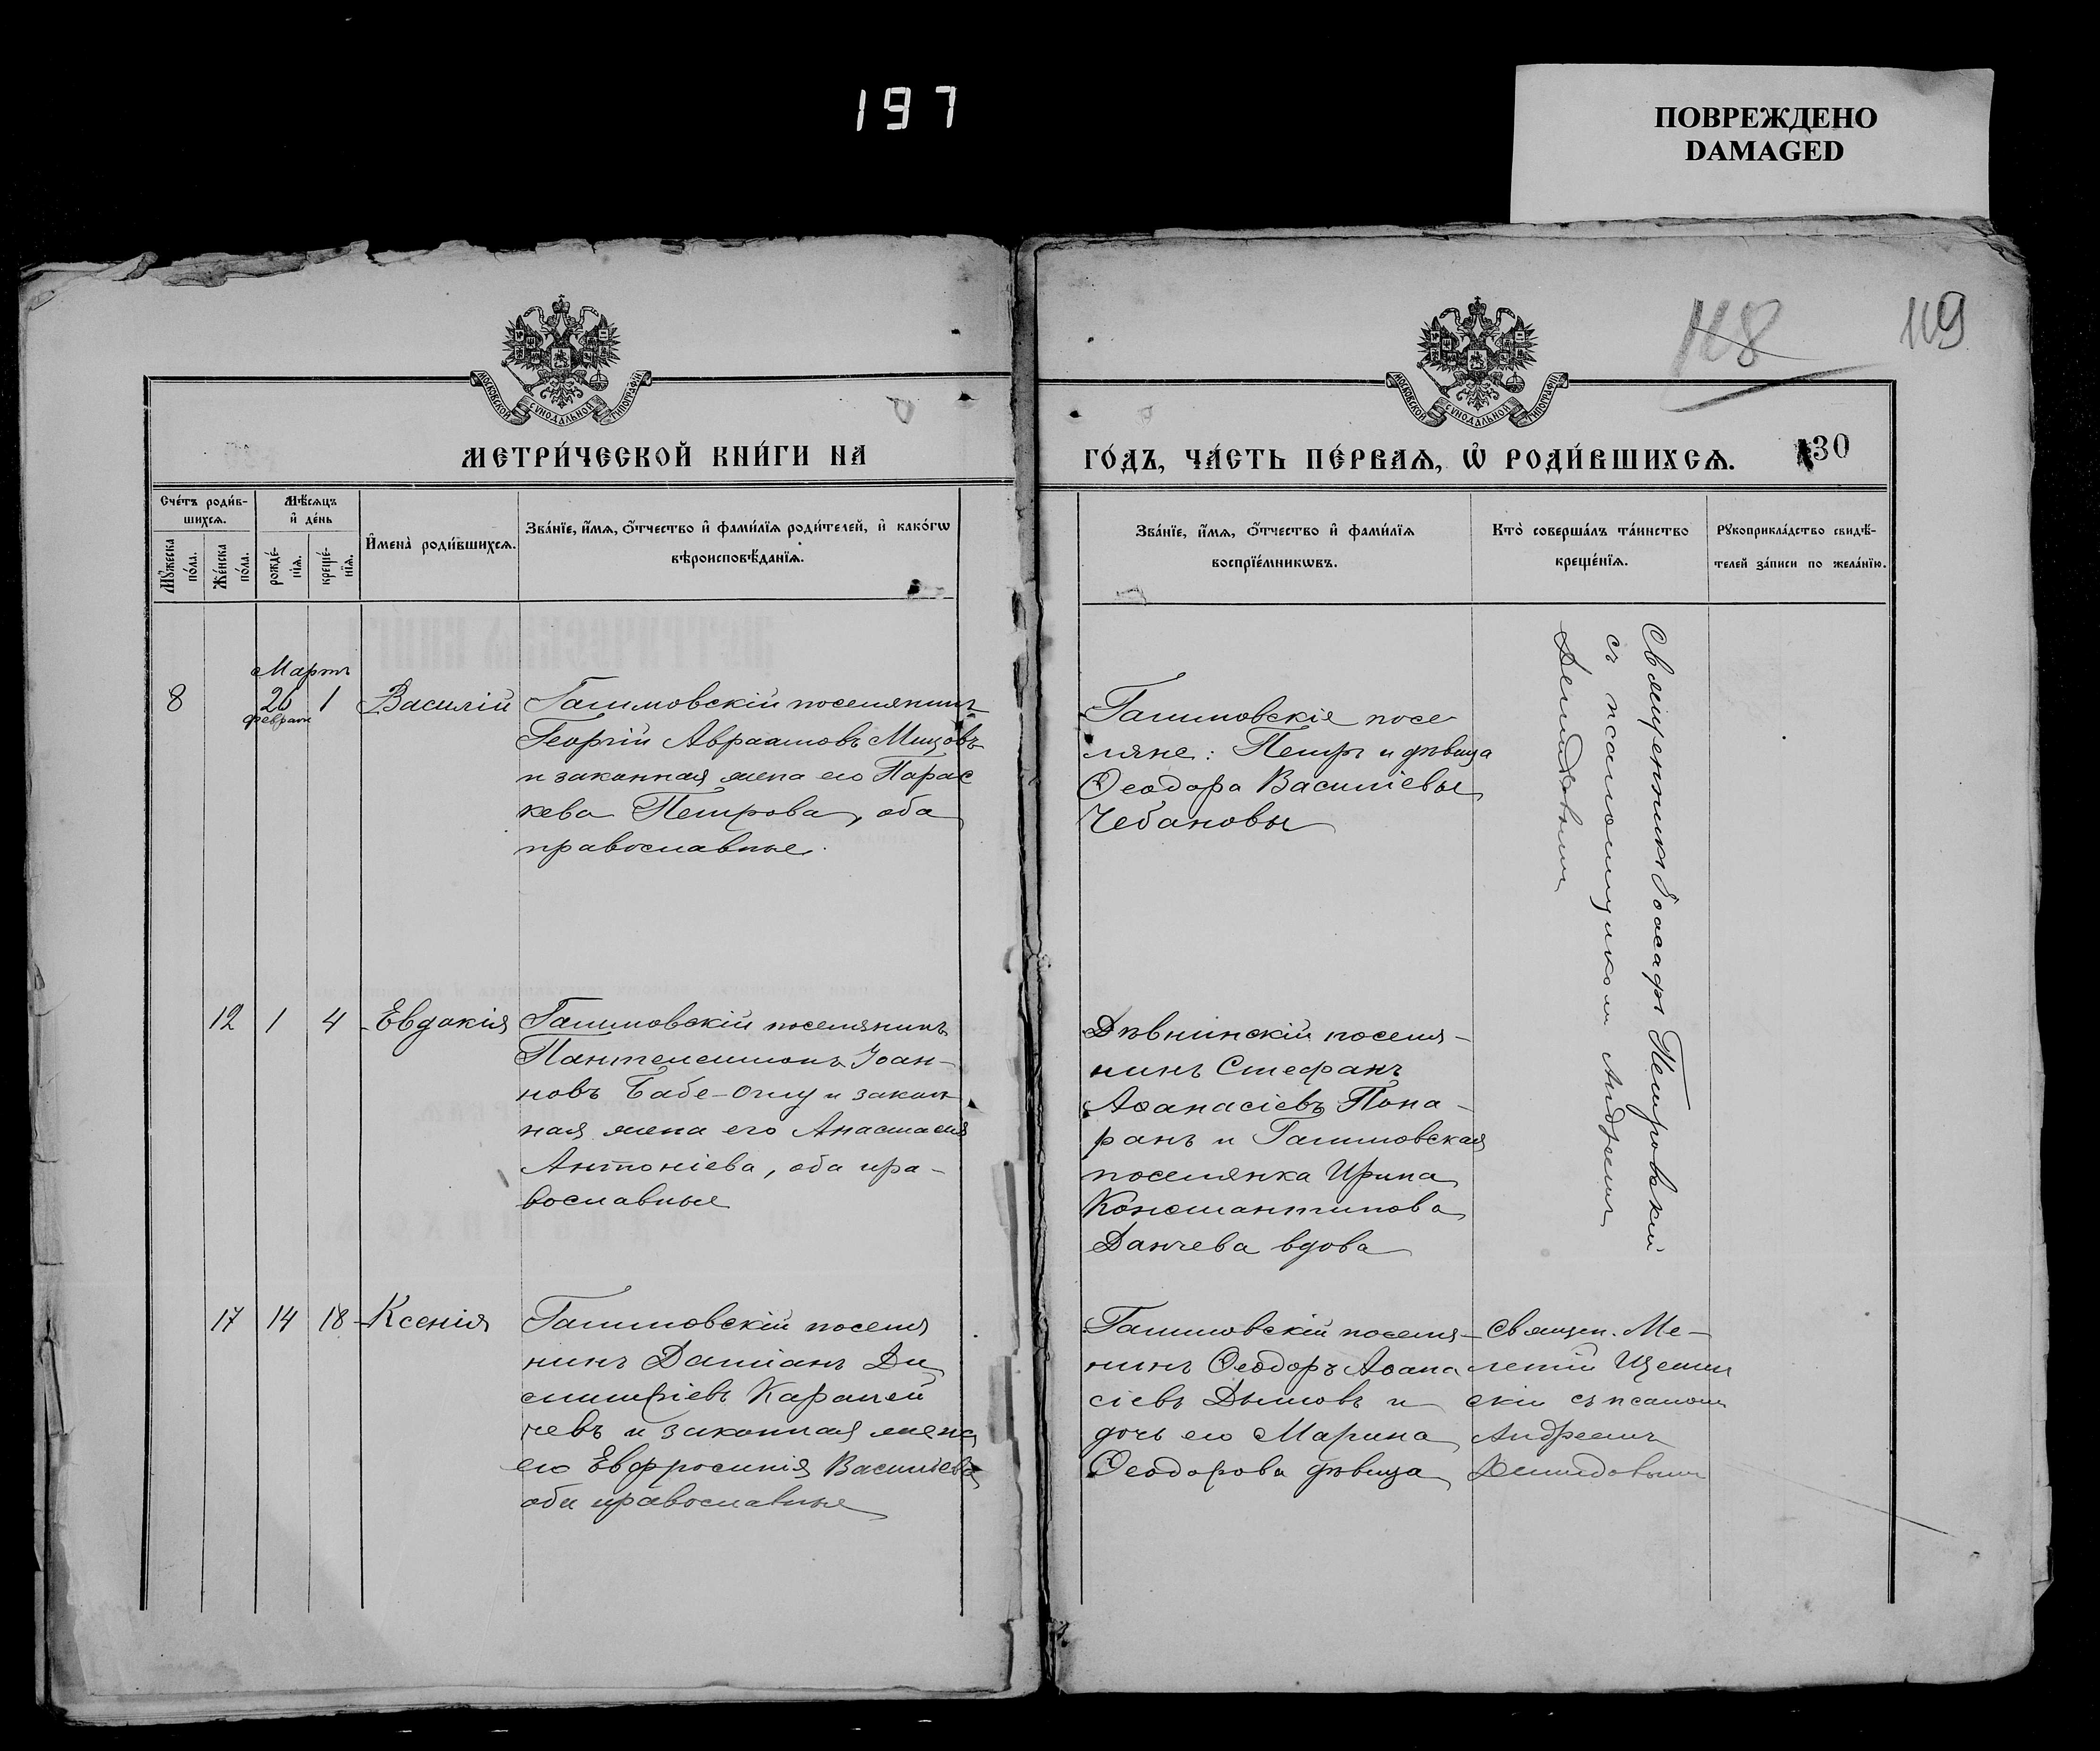 197
ПОВРЕЖДЕНО
DAMAGED
118
119
МОСКОВСКОЙ СѴНОДАЛЬНОЙ ТИПОГРАФІИ
МОСКОВСКОЙ СѴНОДАЛЬНОЙ ТИПОГРАФІИ
МЕТРИ́ЧЕСКОЙ КНИ́ГИ НА
ГО́ДЪ, ЧА́СТЬ ПЕ́РВАѦ, Ѡ҆ РОДИ́ВШИХСѦ.
130
Сче́тъ роди́в-
шихсѧ.
Мѣ́сѧцъ
и҆ де́нь
Мꙋ́жеска
по́ла.
Же́нска
по́ла.
рожде́-
нїѧ.
креще́-
нїѧ.
И҆мена̀ роди́вшихсѧ.
Зва́нїе, и҆́мѧ, ѻ҆́тчество и҆ фами́лїѧ роди́телей, и҆ како́гѡ
вѣроисповѣ́данїѧ.
Зва́нїе, и҆́мѧ, ѻ҆́тчество и҆ фами́лїѧ
воспрїе́мникѡвъ.
Кто̀ соверша́лъ та́инство
креще́нїѧ.
Рꙋкоприкла́дство свидѣ́-
телей за́писи по жела́нїю.
Мартъ
8 26 1 Василій
февраля
Гашмовскій поселянинъ
Георгій Авраамовъ Мицовъ
и законная жена его Парас
кева Петрова, оба
православные.
Гашмовскіе посе
ляне: Петръ и дѣвица
Ѳеодора Василіевы
Чебановы
Священникъ Іоасафъ Петровскій
съ псаломщикомъ Андреемъ
Демидовымъ
12 1 4 Евдокія
Гашмовскій поселянинъ
Пантелеимонъ Іоан-
новъ Бабе-Оглу и закон
ная жена его Анастасія
Антоніева, оба пра-
вославные
Дѣвнинскій поселя-
нинъ Стефанъ
Аѳанасіевъ Пона-
ранъ и Гашмовская
поселянка Ирина
Константинова
Данчева вдова
17 14 18 Ксенія
Гашмовскій поселя
нинъ Даміанъ Ди
митріевъ Карапей
чевъ и законная жена
его Евфросинія Василіева
оба православные
Гашмовскій поселя-
нинъ Ѳеодоръ Аѳана
сіевъ Дымовъ и
дочь его Марина
Ѳеодорова дѣвица
Священ. Ме-
летій
скій съ псалом
Андреемъ
Демидовымъ